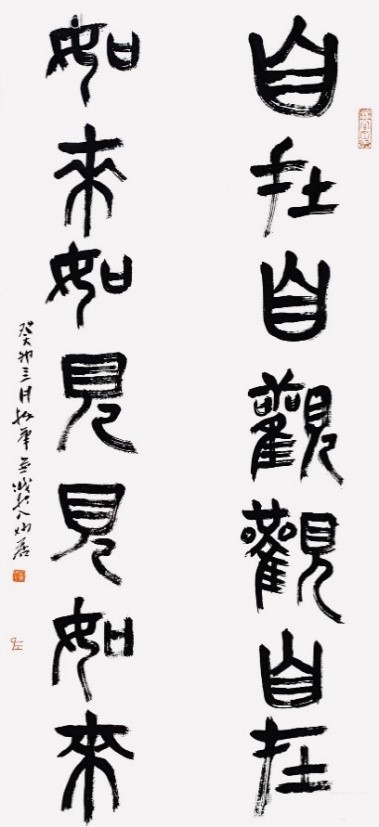 自在自觀觀自在
如來如見見如來
癸卯三月